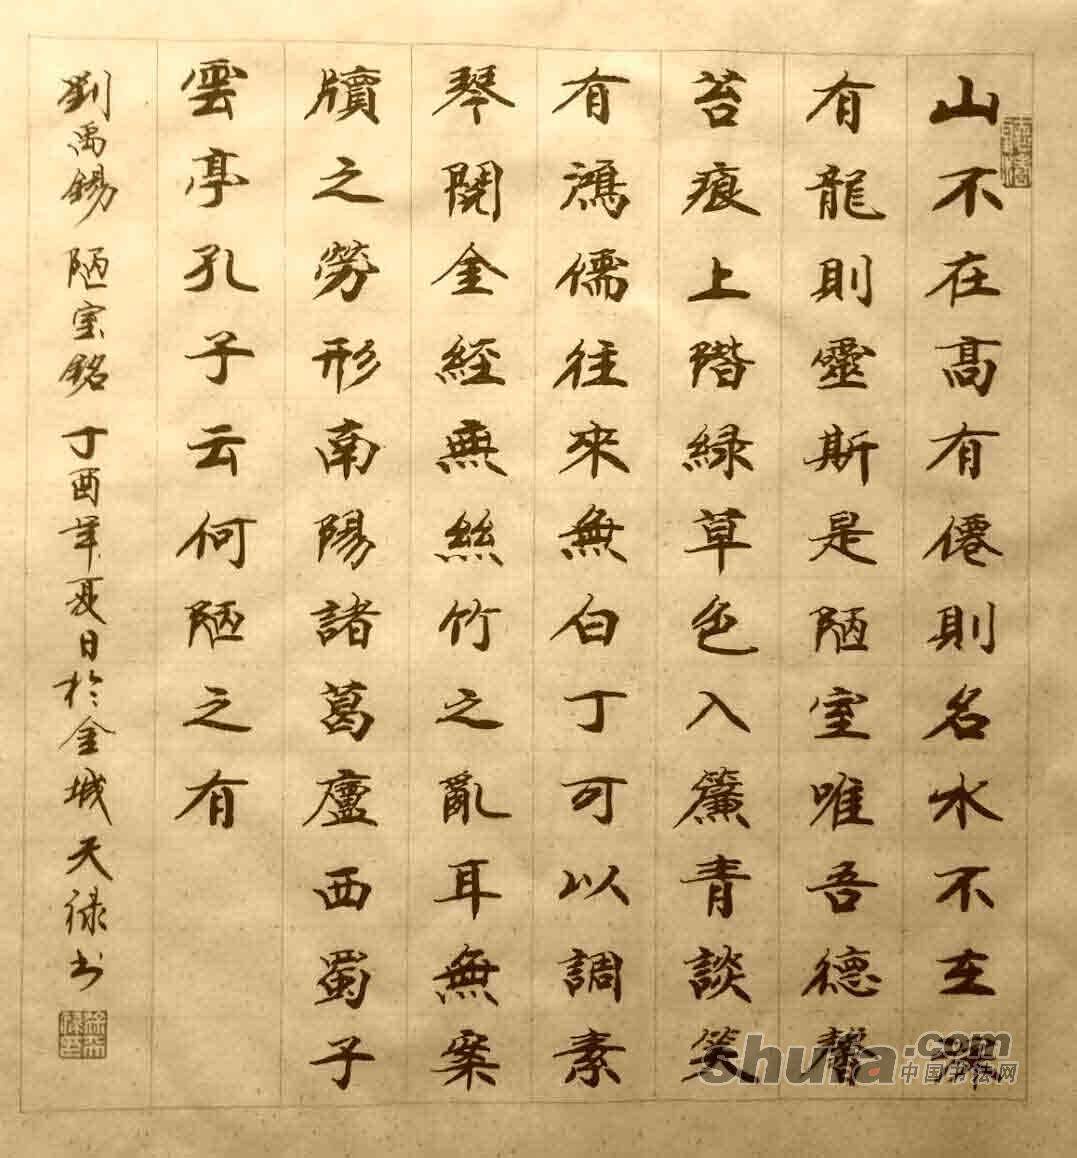 山不在髙有僊則名水不在深
有龍則靈斯是陋室唯吾德馨
苔痕上階緑草色入簾青談笑
有鴻儒往來無白丁可以調素
琴閱金經無絲竹之亂耳無案
牘之勞形南陽諸葛廬西蜀子
雲亭孔子云何陋之有
劉禹錫 陋室銘 丁酉年夏日於金城天禄书
shufa.com
中国书法网